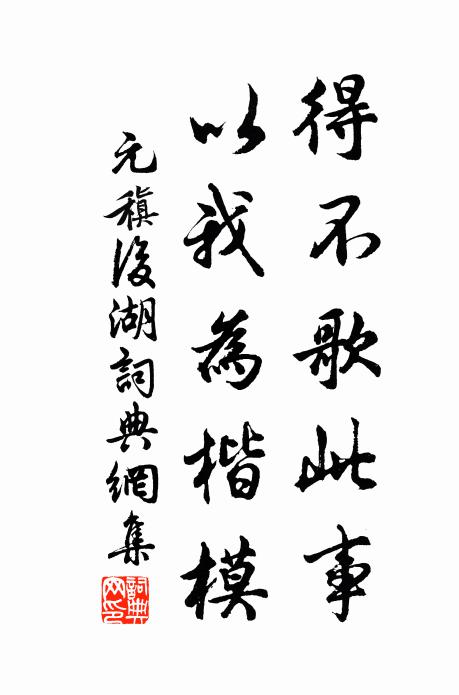 得不歌此事
以我為楷模
元稹後湖詞典網集
詞典
网印